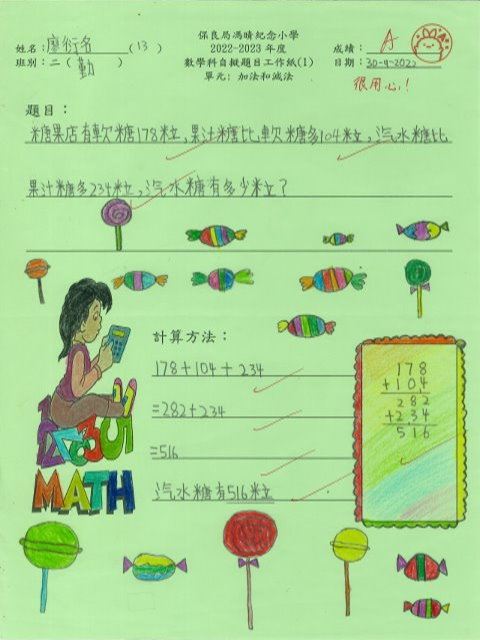 保良局馮晴紀念小學
姓名：廖衍名(13) 2022-2023 年度 成績：A
班別：二(勤) 數學科自擬題目工作紙(1) 日期：30-9-2022
單元：加法和減法 很用心！
題目：
糖果店有軟糖178粒，果汁糖比軟糖多104粒，汽水糖比
果汁糖多234粒，汽水糖有多少粒？
計算方法：
178+104+234
=282+234
=516
汽水糖有516粒
178
+104
282
+234
516
MATH